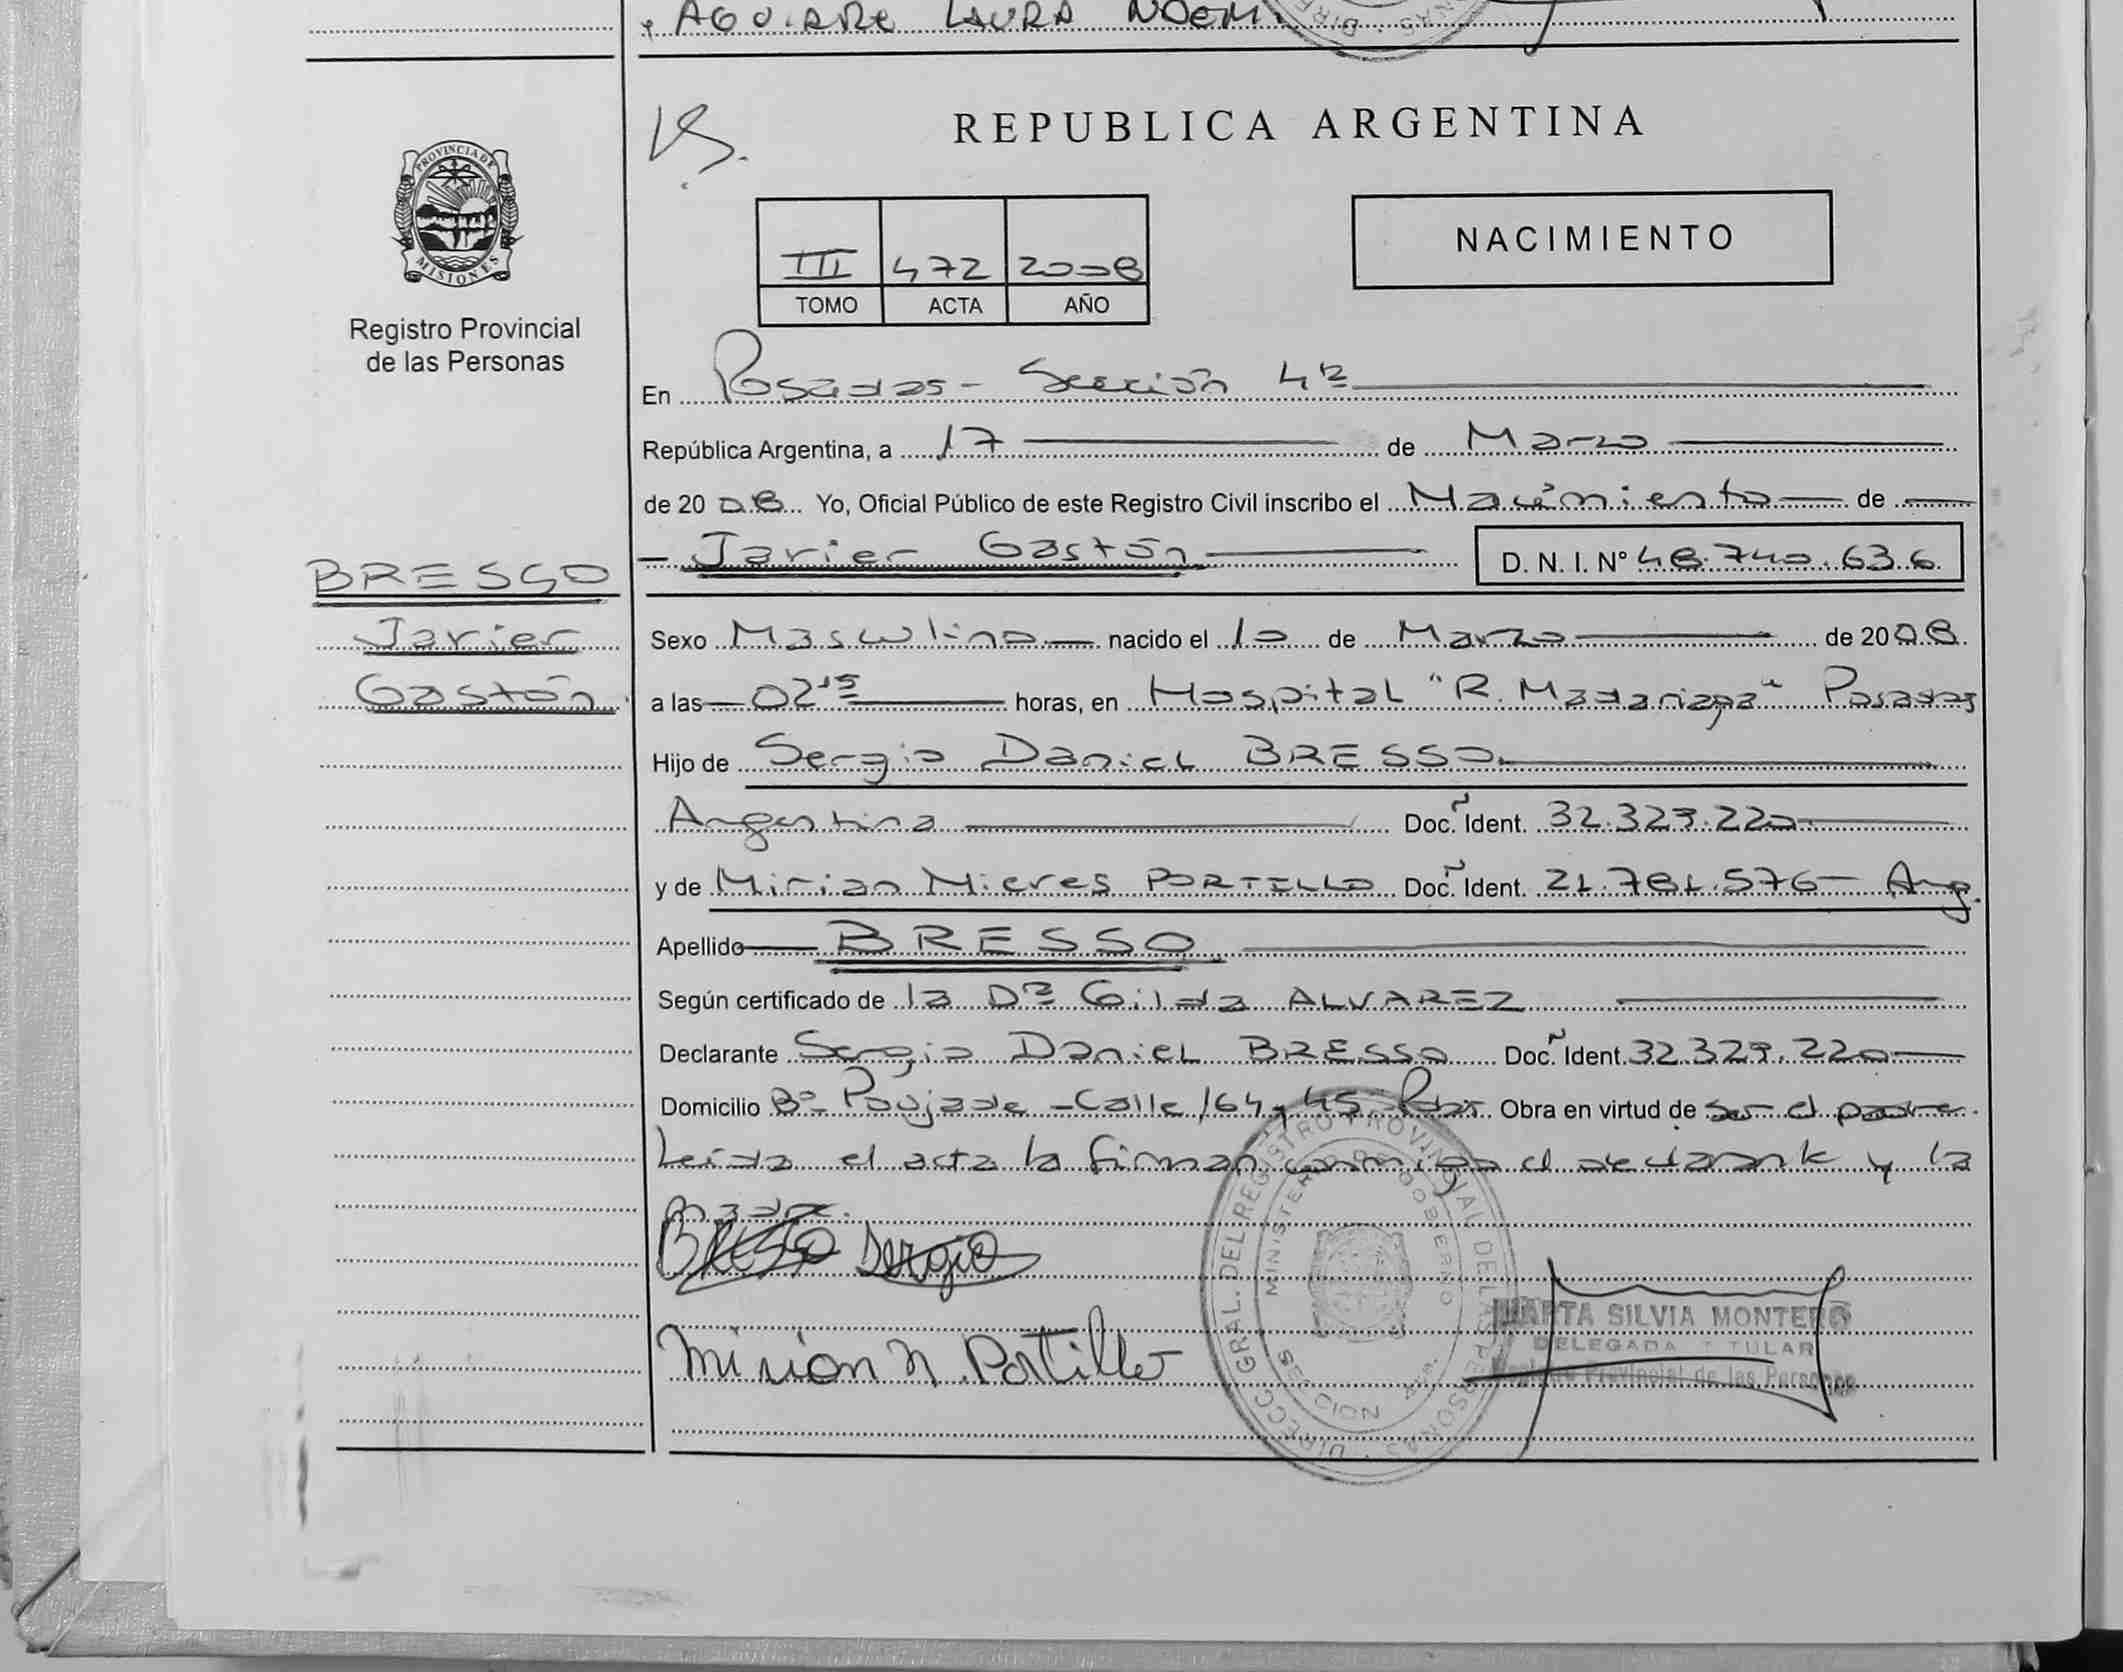 AGUIARE LAURA NOEMI
PROVINCIA DE
MISIONES
Registro Provincial
de las Personas
REPUBLICA ARGENTINA
NACIMIENTO
III 472 2008
TOMO ACTA AÑO
En Posadas - Sección 4ª
República Argentina, a 17 de Marzo
de 2008 Yo, Oficial Público de este Registro Civil inscribo el Nacimiento de
Javier Gastón D. N. I. Nº 48.740.636
BRESSO
Javier
Gastón
Sexo Masculino nacido el 10 de Marzo de 2008
a las 02¹⁵ horas, en Hospital "R. Madariaga" Posadas
Hijo de Sergio Daniel BRESSO
Argentina Doc. Ident. 32.329.220
y de Mirian Nieres PORTILLO Doc. Ident. 21.781.576 - Arg.
Apellido BRESSO
Según certificado de la Dª Gilda ALVAREZ
Declarante Sergio Daniel BRESSO Doc. Ident. 32.329.220
Domicilio Bº Poujade - Calle 164 y 45 Obra en virtud de ser el padre.
Leída el acta la firman conmigo el declarante y la
madre.
BRESSO Sergio
Mirian N. Portillo
DIRECC. GRAL. DEL REGISTRO PROVINCIAL DE LAS PERSONAS
MINISTERIO DE GOBIERNO
SECCION 4ta.
MARTA SILVIA MONTERO
DELEGADA TITULAR
Registro Provincial de las Personas